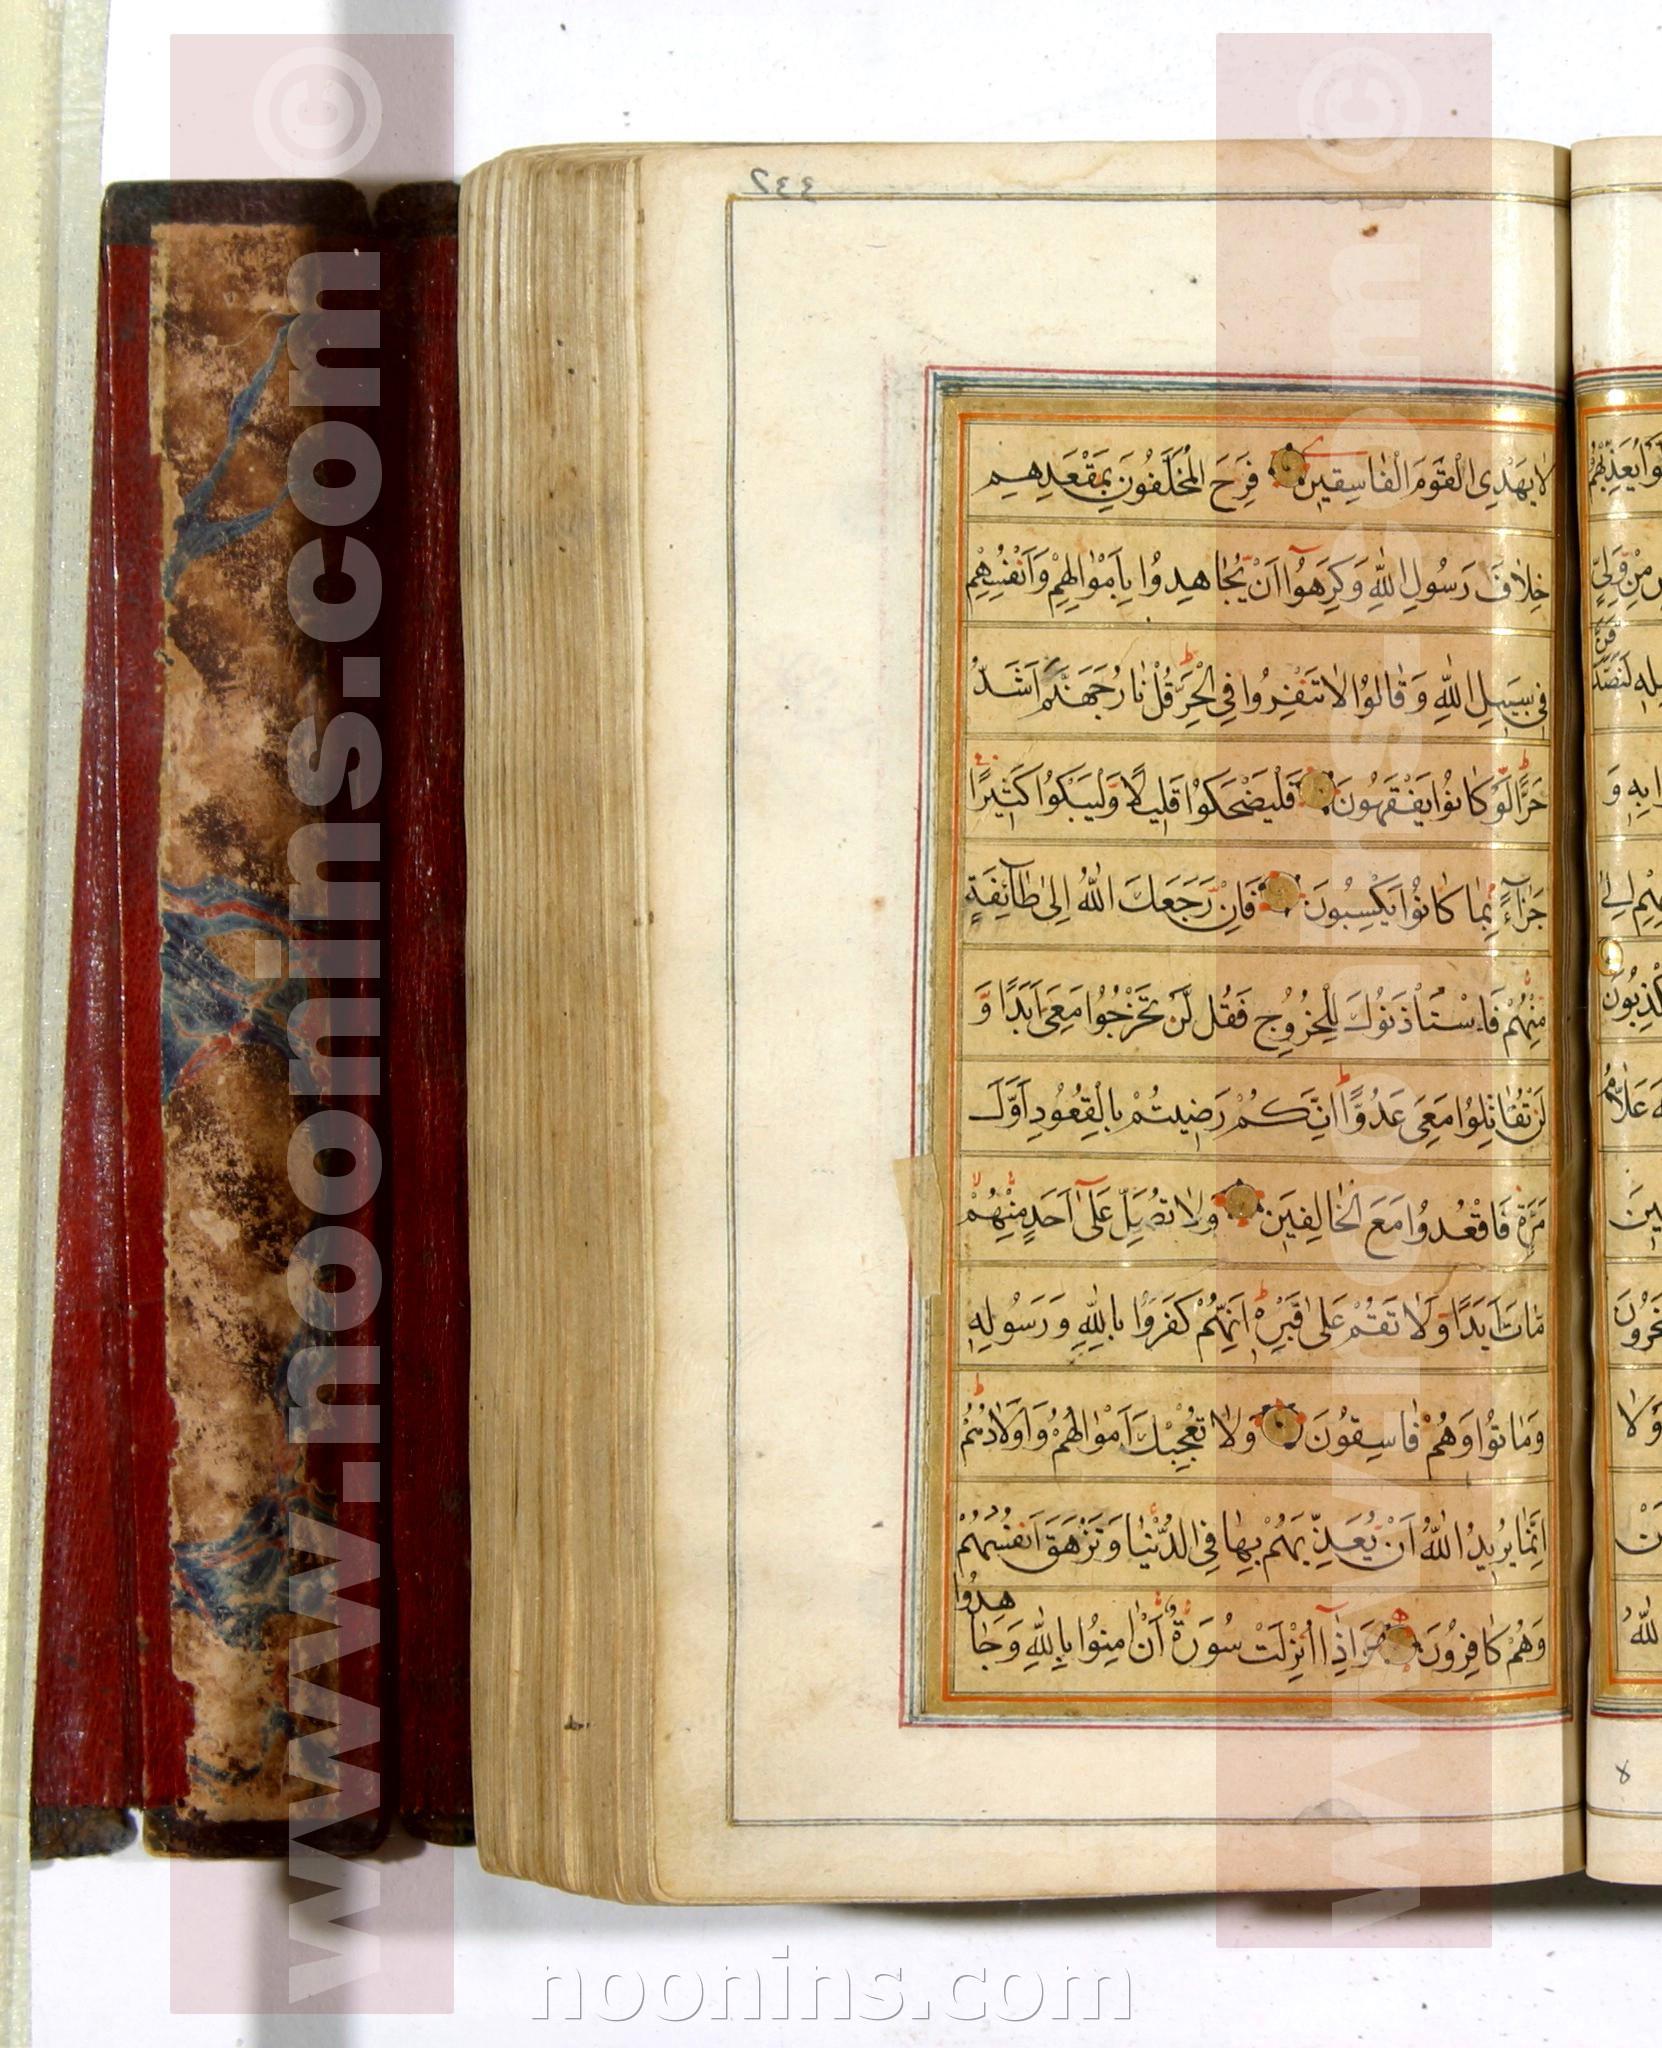 لَا يَهْدِى الْقَوْمَ الْفَاسِقِينَ فَرِحَ الْمُخَلَّفُونَ بِمَقْعَدِهِمْ
خِلَافَ رَسُولِ اللّٰهِ وَكَرِهُوٓا اَنْ يُجَاهِدُوا بِاَمْوَالِهِمْ وَاَنْفُسِهِمْ
فِى سَبِيلِ اللّٰهِ وَقَالُوا لَا تَنْفِرُوا فِى الْحَرِّ قُلْ نَارُ جَهَنَّمَ اَشَدُّ
حَرًّا لَوْ كَانُوا يَفْقَهُونَ فَلْيَضْحَكُوا قَلِيلًا وَلْيَبْكُوا كَثِيرًا
جَزَآءً بِمَا كَانُوا يَكْسِبُونَ فَاِنْ رَجَعَكَ اللّٰهُ اِلىٰ طَآئِفَةٍ
مِنْهُمْ فَاسْتَاْذَنُوكَ لِلْخُرُوجِ فَقُلْ لَنْ تَخْرُجُوا مَعِىَ اَبَدًا وَ
لَنْ تُقَاتِلُوا مَعِىَ عَدُوًّا اِنَّكُمْ رَضِيتُمْ بِالْقُعُودِ اَوَّلَ
مَرَّةٍ فَاقْعُدُوا مَعَ الْخَالِفِينَ وَلَا تُصَلِّ عَلىٰٓ اَحَدٍ مِنْهُمْ
مَاتَ اَبَدًا وَلَا تَقُمْ عَلىٰ قَبْرِهِ اِنَّهُمْ كَفَرُوا بِاللّٰهِ وَرَسُولِهِ
وَمَاتُوا وَهُمْ فَاسِقُونَ وَلَا تُعْجِبْكَ اَمْوَالُهُمْ وَاَوْلَادُهُمْ
اِنَّمَا يُرِيدُ اللّٰهُ اَنْ يُعَذِّبَهُمْ بِهَا فِى الدُّنْيَا وَتَزْهَقَ اَنْفُسُهُمْ
وَهُمْ كَافِرُونَ وَاِذَآ اُنْزِلَتْ سُورَةٌ اَنْ اٰمِنُوا بِاللّٰهِ وَجَاهِدُوا
www.noonins.com ©
www.noonins.com ©
noonins.com